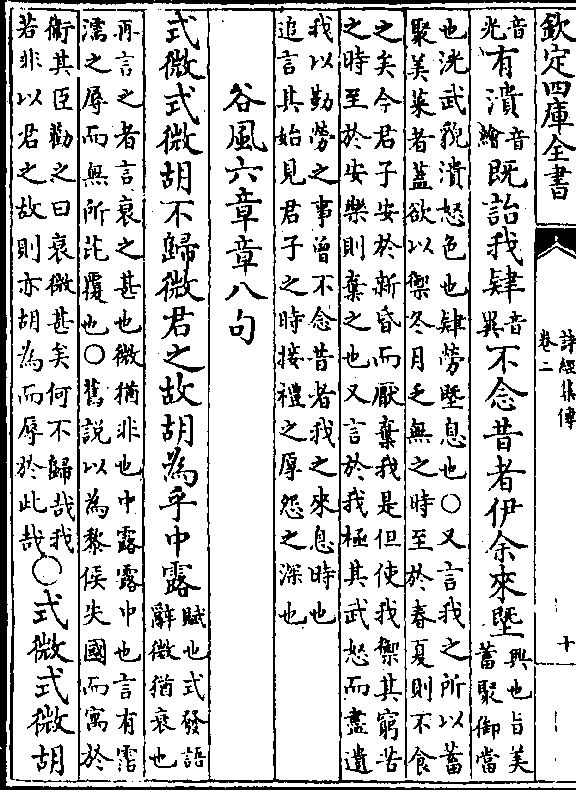 欽定四庫全書
詩經集傳
卷二
十
音光有潰音繪既詒我肄音異不念昔者伊余來塈興也旨美蓄聚御當
也洸武貌潰怒色也肄勞塈息也○又言我之所以蓄
聚美菜者蓋欲以禦冬月乏無之時至於春夏則不食
之矣今君子安於新昏而厭棄我是但使我禦其窮苦
之時至於安樂則棄之也又言於我極其武怒而盡遺
我以勤勞之事曾不念昔者我之來息時也
追言其始見君子之時接禮之厚怨之深也
谷風六章章八句
式微式微胡不歸微君之故胡為乎中露賦也式發語辭微猶衰也
再言之者言衰之甚也微猶非也中露露中也言有霑
濡之辱而無所芘覆也○舊說以為黎侯失國而寓於
衛其臣勸之曰衰微甚矣何不歸哉我
若非以君之故則亦胡為而辱於此哉○式微式微胡